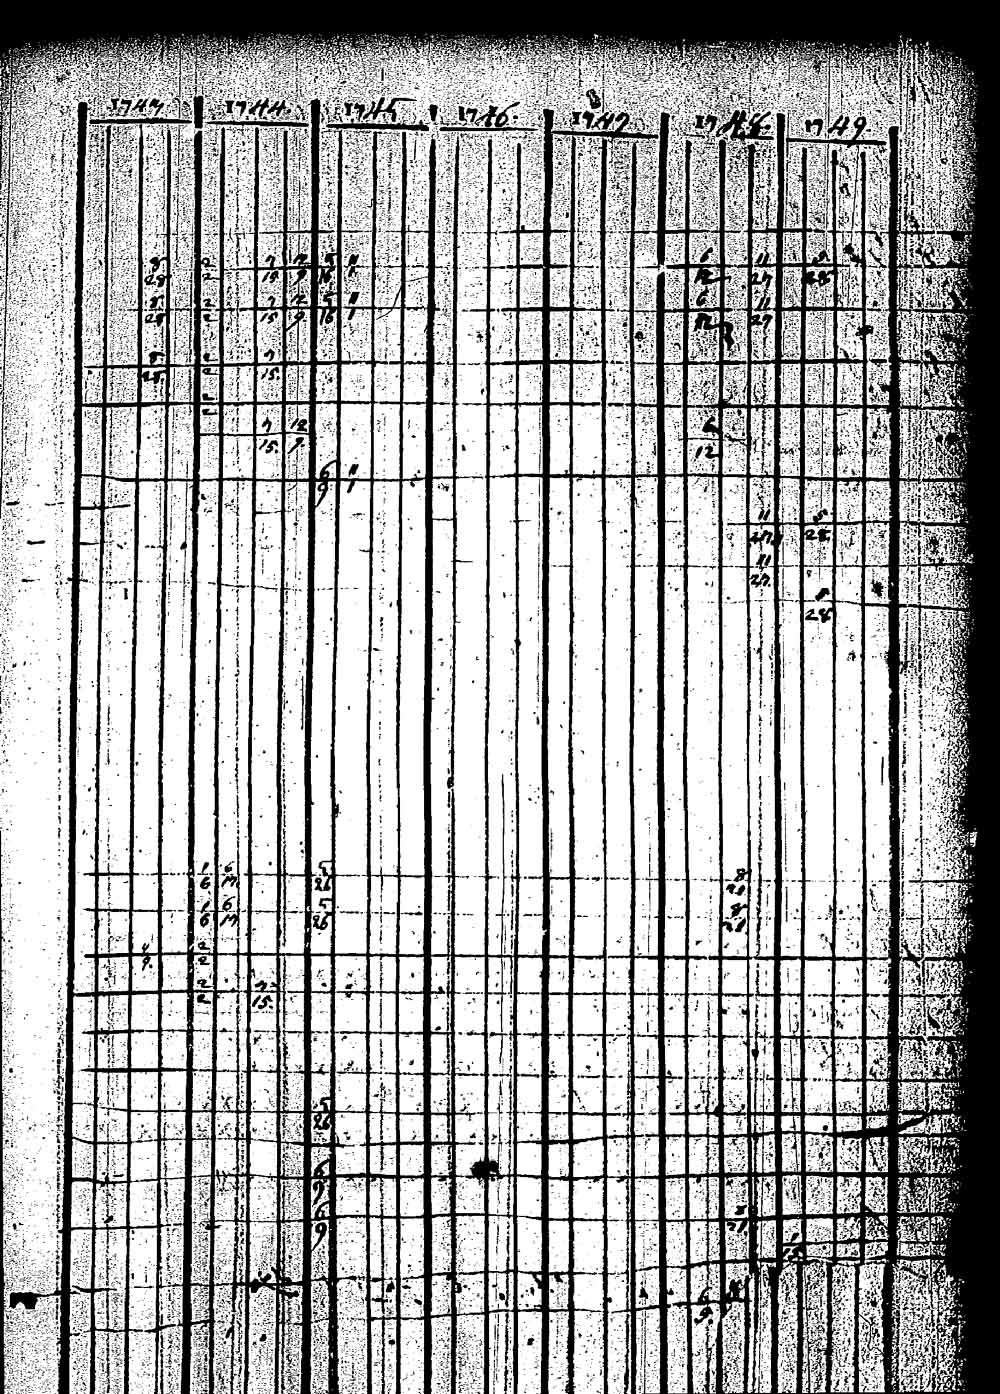 1743 1744 1745 1746 1747 1748 1749
8 2 7 12 5 11 6 11 5
28 2 15 9 16 1 12 27 28
8 2 7 12 5 11 6 11
28 2 15 9 16 1 12 27
8 2 7
28 2 15
2
2
7 12 6
15 9 12
6 11
9 1
11 5
27 28
11
27
28
1 6 5 8
6 17 26 21
1 6 5 8
6 17 26 21
2
9 2
2 7
2 15
5
26
6
9
6
9 21
6
9